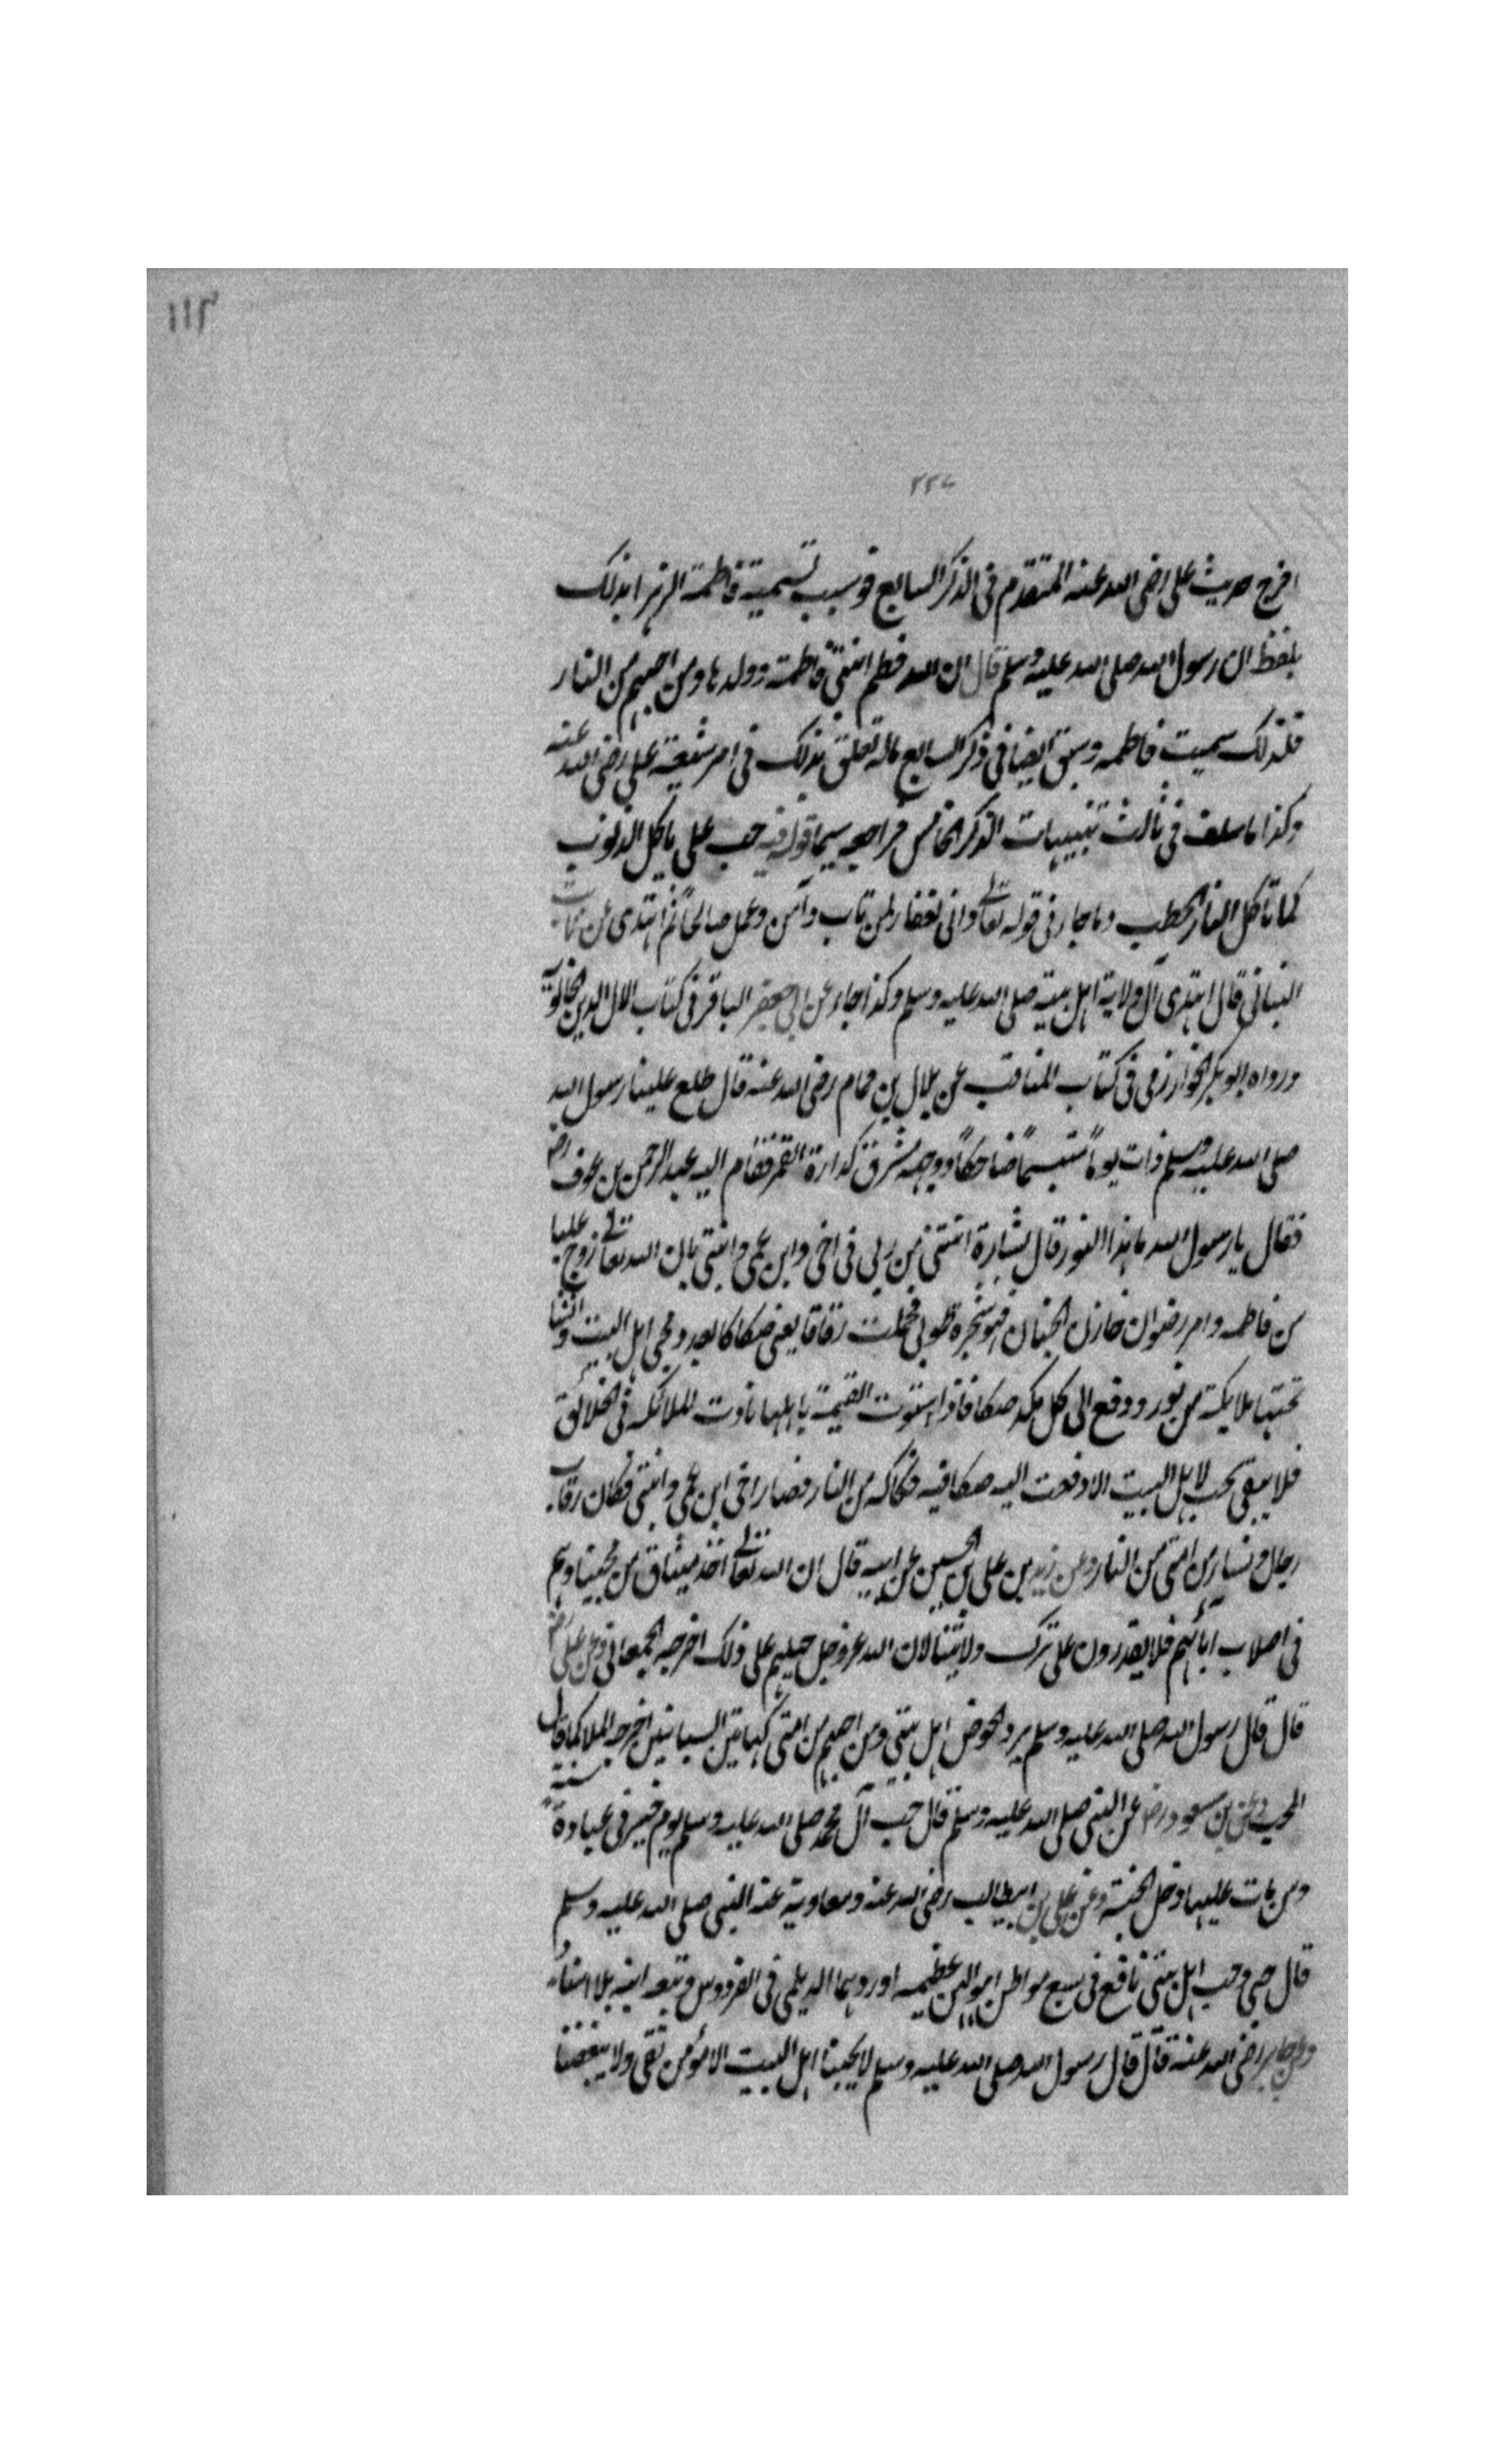 ١١٣
٢٢٧
اخرج حديث على رضى الله عنه المتقدم فى الذكر السابع فى سبب تسمية فاطمة الزهرا بذلك
بلفظ ان رسول الله صلى الله عليه وسلم قال ان الله فطم ابنتى فاطمة وولدها ومن احبهم من النار
فلذلك سميت فاطمه وسبق ايضا فى ذكر السابع ماله تعلق بذلك فى امر شيعة على رضى الله عنه
وكذا ما سلف فى ثالث تنبيهات الذكر الخامس فراجعه سيما قوله فيه حب على ياكل الذنوب
كما تاكل النار الحطب وما جاء فى قوله تعالى وانى لغفار لمن تاب وآمن وعمل صالحاً ثم اهتدى عن ثابت
البنانى قال اهتدى الى ولاية اهل بيته صلى الله عليه وسلم وكذا جاء عن ابى جعفر الباقر فى كتاب الال لابن خالويه
ورواه ابو بكر الخوارزمى فى كتاب المناقب عن بلال بن حمام رضى الله عنه قال طلع علينا رسول الله
صلى الله عليه وسلم ذات يوماً متبسماً ضاحكاً ووجهه مشرق كدارة القمر فقام اليه عبد الرحمن بن عوف رض
فقال يا رسول الله ما هذا النور قال بشارة اتتنى من ربى فى اخى وابن عمى وابنتى بان الله تعالى زوج عليا
من فاطمه وامر رضوان خازن الجنان فهز شجرة طوبى فحملت رقاقا يعنى صكاكا بعدد محبى اهل البيت وانشا
تحتها ملايكة من نور ودفع الى كل ملك صكا فاذا استوت القيمة باهلها نادت الملائكه فى الخلائق
فلا يبقى محب لاهل البيت الا دفعت اليه صكا فيه فكاكه من النار فصار اخى ابن عمى وابنتى فكان رقاب
رجال ونساء من امتى من النار وعن زيد بن على بن الحسين عن ابيه قال ان الله تعالى اخذ ميثاق من يحبنا وهم
فى اصلاب آبائهم فلا يقدرون على ترك ولايتنا لان الله عز وجل جبلهم على ذلك اخرجه الجعابى وعن على رض
قال قال رسول الله صلى الله عليه وسلم يرد الحوض اهل بيتى ومن احبهم من امتى كهاتين السبابتين اخرجه الملا كما قال
المحب وعن بن مسعود رض عن النبى صلى الله عليه وسلم قال حب آل محمد صلى الله عليه وسلم يوم خير فى عبادة سنة
ومن مات عليها دخل الجنة وعن على بن ابيطالب رضى الله عنه ومعاوية عنه النبى صلى الله عليه وسلم
قال حبى وحب اهل بيتى نافع فى سبع مواطن اهوالهن عظيمه اوردهما الديلمى فى الفردوس وتبعه ابنه بلا اسناد
وعن جابر رضى الله عنه قال قال رسول الله صلى الله عليه وسلم لا يحبنا اهل البيت الا مؤمن تقى ولا يبغضنا